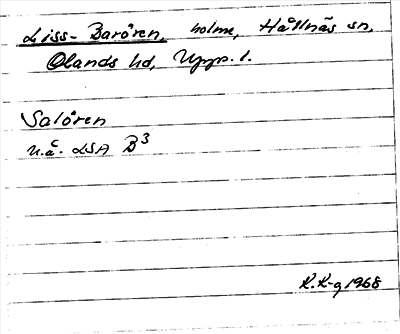 Liss-Barören, holme, Hållnäs sn,
Olands hd, Upps. l.
Salören
u.å. LSA B3
K.K-g 1968